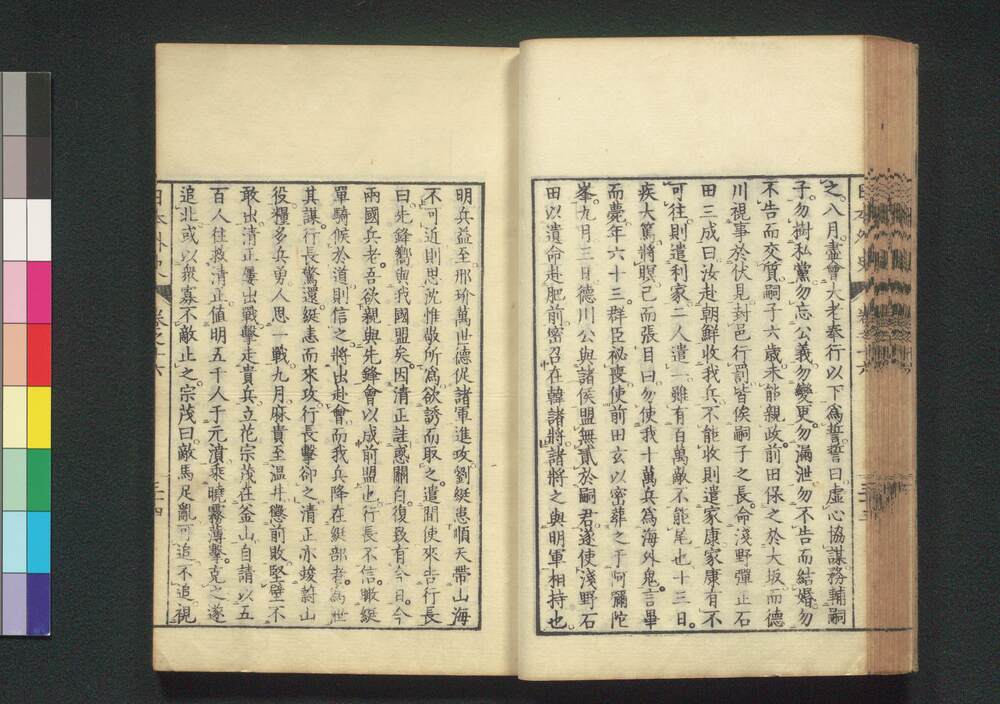 之八月盡會大老奉行以下爲誓誓曰虛心協謀務輔嗣
子勿樹私黨勿忘公義勿變更勿漏泄勿不告而結婚勿
不告而交質嗣子六歲未能親政前田保之於大坂而德
川視事於伏見封邑行罰皆俟嗣子之長命淺野彈正石
田三成曰汝赴朝鮮收我兵不能收則遣家康家康有不
可往則遣利家二人遣一雖有百萬敵不能尾也十三日
疾大篤將瞑已而張目曰勿使我十萬兵爲海外鬼言畢
而薨年六十三群臣祕喪使前田玄以密葬之于阿彌陀
峯九月三日德川公與諸侯盟無貳於嗣君遂使淺野石
田以遺命赴肥前密召在韓諸將諸將之與明軍相持也
明兵益至邢玠萬世德促諸軍進攻劉綎患順天帶山海
不可近則思沈惟敬所爲欲誘而取之遣間使來告行長
曰先鋒嚮與我國盟矣因清正詿惑關白復致有今日今
兩國兵老吾欲親與先鋒會以成前盟也行長不信瞰綎
單騎候於道則信之將出赴會而我兵降在綎部者爲世
其謀行長驚還綎恚而來攻行長擊卻之清正亦蔚山
役糧多兵勇人思一戰九月麻貴至温井懲前敗堅壁不
敢出清正屢出戰擊走貴兵立花宗茂在釜山自請以五
百人往救清正値明五千人于元濆乘曉霧薄擊克之遂
追北或以衆寡不敵止之宗茂曰敵馬足亂可追不追視
日本外史 卷之十六 三十四